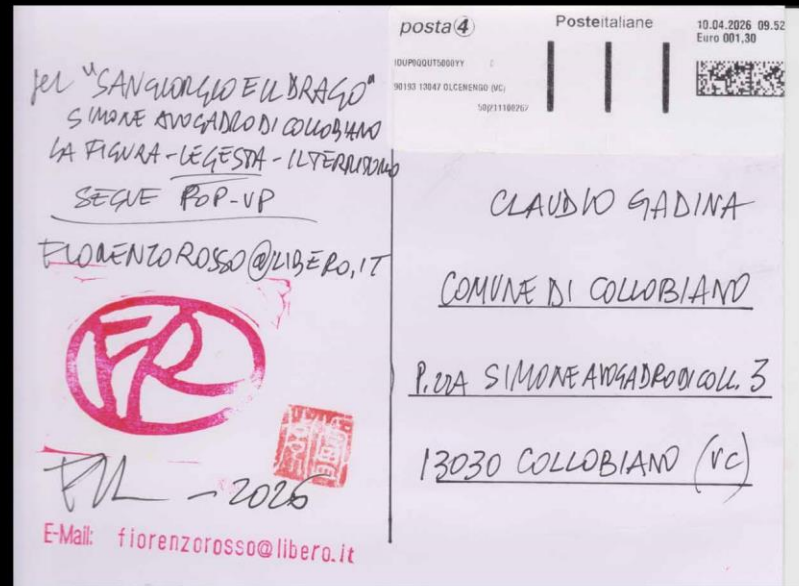 per "SAN GIORGIO E IL DRAGO"
SIMONE AVOGADRO DI COLLOBIANO
LA FIGURA - LE GESTA - IL TERRITORIO
SEGUE POP-UP
FIORENZOROSSO@LIBERO.IT
FR
- 2026
E-Mail: fiorenzorosso@libero.it
posta4
Posteitaliane
10.04.2026 09.52
Euro 001,30
13047 OLCENENGO (VC)
CLAUDIO GADINA
COMUNE DI COLLOBIANO
P.ZZA SIMONE AVOGADRO DI COLL. 3
13030 COLLOBIANO (VC)